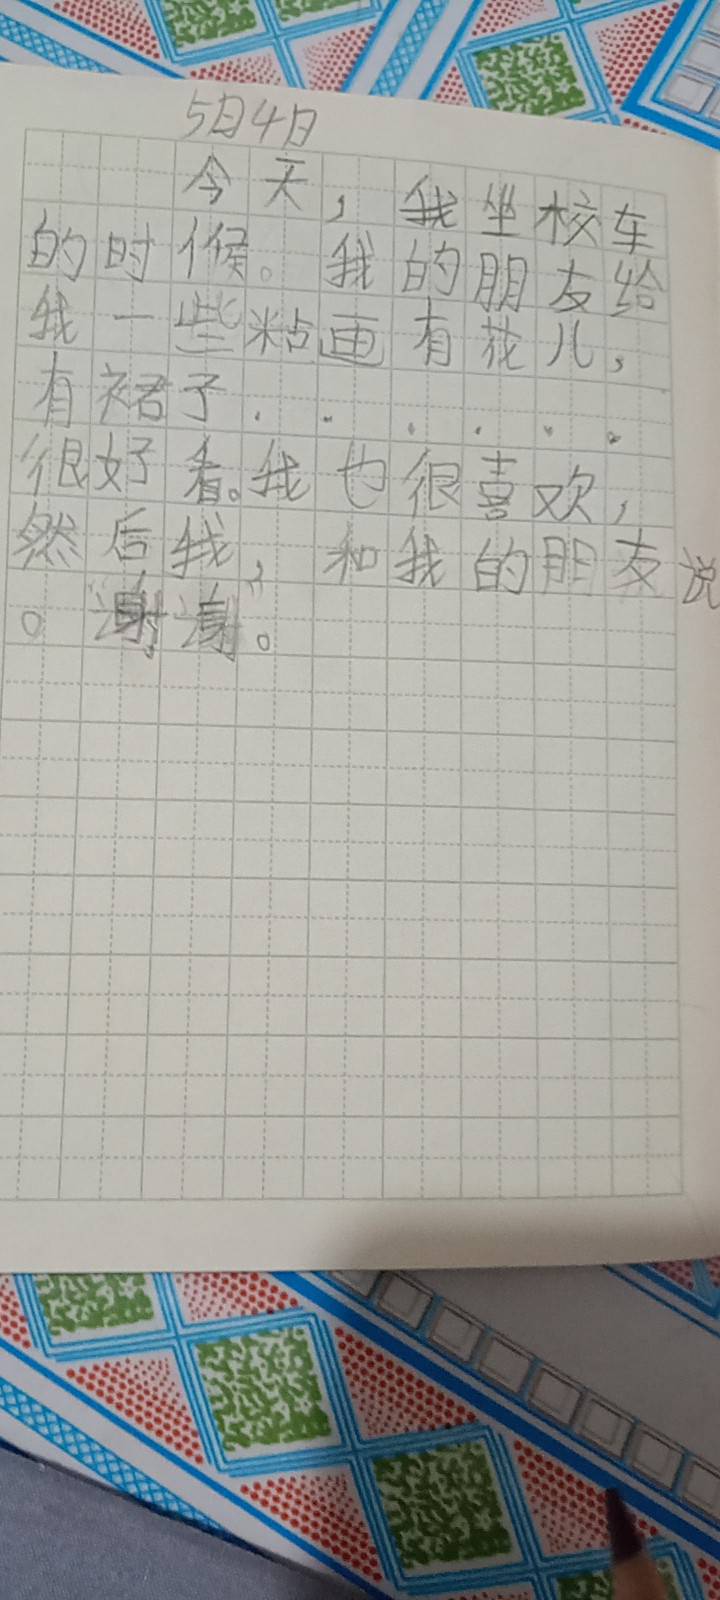 5月4日
今天，我坐校车
的时候。我的朋友给
我一些粘画有花儿，
有裙子......
很好看。我也很喜欢，
然后我，和我的朋友说
。“谢谢”。